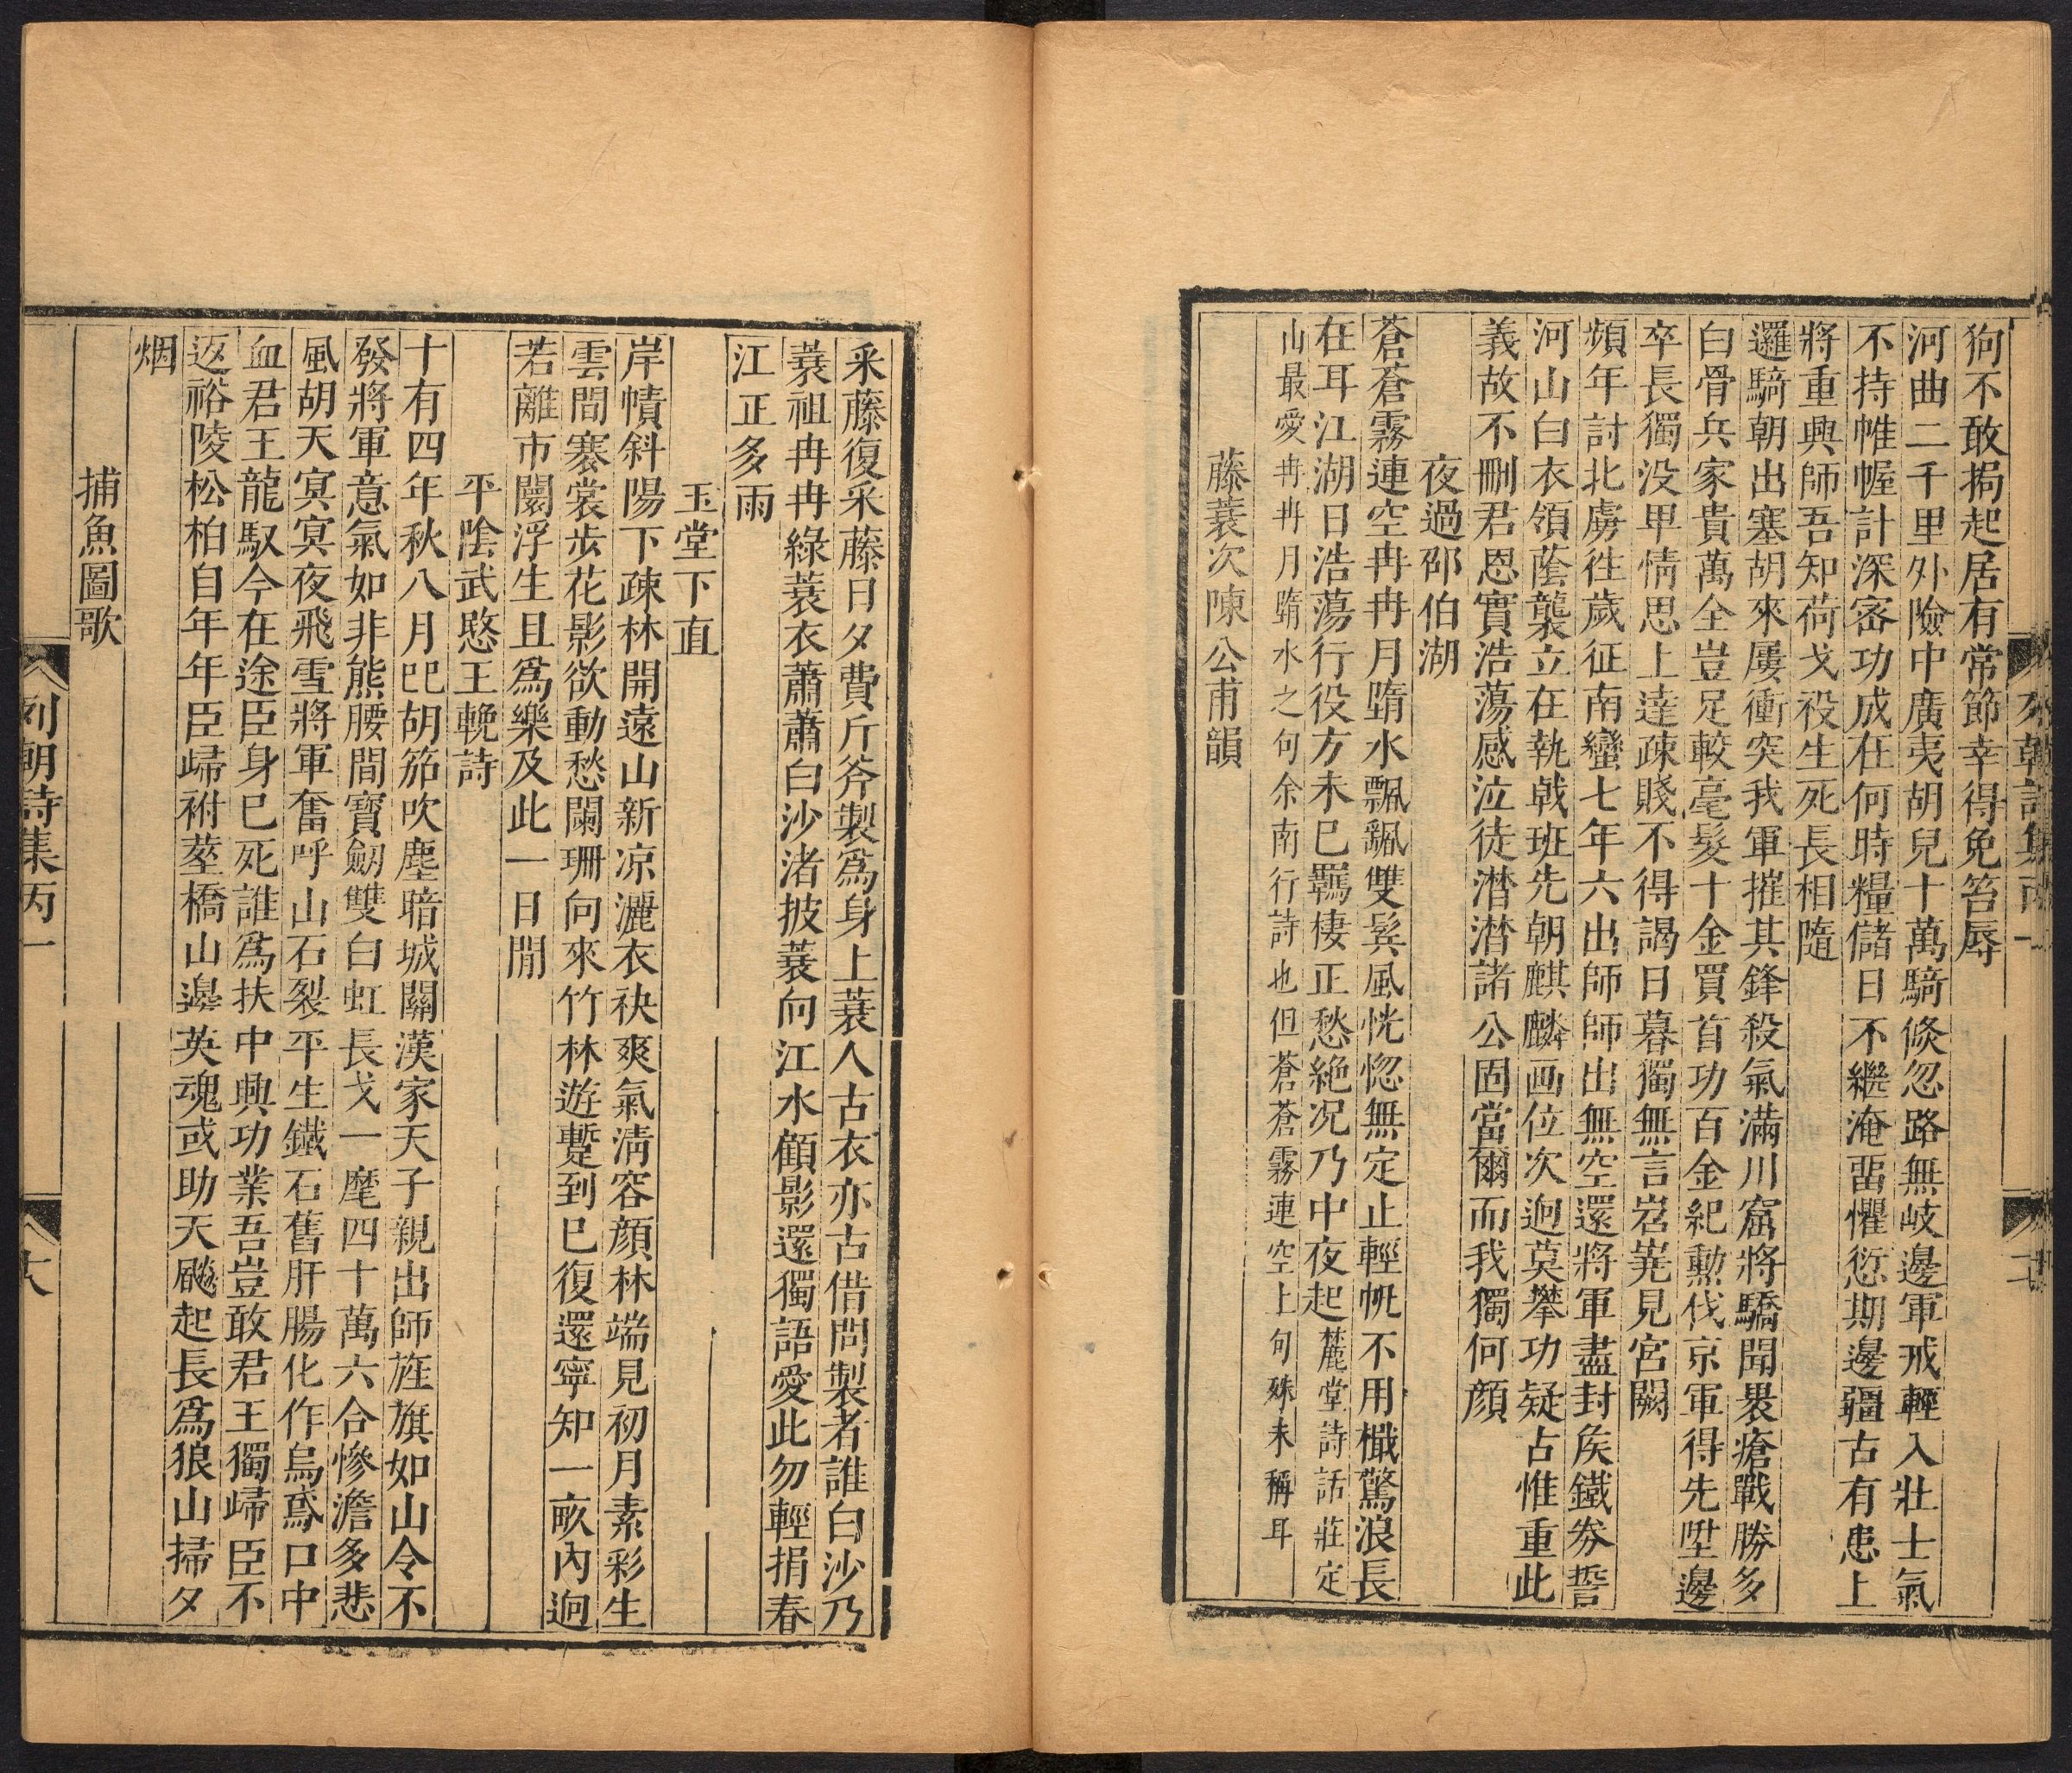 狗不敢搊起居有常節幸得免笞辱
河曲二千里外險中廣夷胡兒十萬騎倐忽路無岐邊軍戒輕入壯士氣
不持帷幄計深密功成在何時糧儲日不繼淹畱懼愆期邊疆古有患上
將重興師吾知荷戈役生死長相隨
邏騎朝出塞胡來屢衝突我軍摧其鋒殺氣滿川窟將驕聞畏瘡戰勝多
白骨兵家貴萬全豈足較毫髮十金買首功百金紀勲伐京軍得先陞邊
卒長獨没甲情思上達疎賤不得謁日暮獨無言岧嶤見宮闕
頻年討北虜徃歲征南蠻七年六出師師出無空還將軍盡封矦鐵券誓
河山白衣領蔭襲立在執戟班先朝麒麟画位次逈莫攀功疑占惟重此
義故不刪君恩實浩蕩感泣徒潸潸諸公固當爾而我獨何顔
夜過邵伯湖
蒼蒼霧連空冉冉月墮水飄飄雙鬂風恍惚無定止輕帆不用檝驚浪長
在耳江湖日浩蕩行役方未巳羈棲正愁絶况乃中夜起麓堂詩話莊定
山最愛冉冉月墮水之句余南行詩也但蒼蒼霧連空上句殊未稱耳
藤蓑次陳公甫韻
列朝詩集丙一
十七
采藤復采藤日夕費斤斧製爲身上蓑人古衣亦古借問製者誰白沙乃
蓑祖冉冉綠蓑衣蕭蕭白沙渚披蓑向江水顧影還獨語愛此勿輕捐春
江正多雨
玉堂下直
岸幘斜陽下疎林開遠山新凉灑衣袂爽氣淸容顔林端見初月素彩生
雲間褰裳步花影欲動愁闌珊向來竹林遊蹔到巳復還寧知一畝內逈
若離市闤浮生且爲樂及此一日閒
平陰武愍王輓詩
十有四年秋八月𦫵胡笳吹塵暗城關漢家天子親出師旌旗如山令不
發將軍意氣如非熊腰間寶劒雙白虹長戈一麾四十萬六合慘澹多悲
風胡天冥冥夜飛雪將軍奮呼山石裂平生鐵石舊肝腸化作烏鳶口中
血君王龍馭今在途臣身巳死誰爲扶中興功業吾豈敢君王獨歸臣不
返裕陵松柏自年年臣歸祔葬橋山邊英魂或助天飈起長爲狼山掃夕
烟
捕魚圖歌
列朝詩集丙一
十八